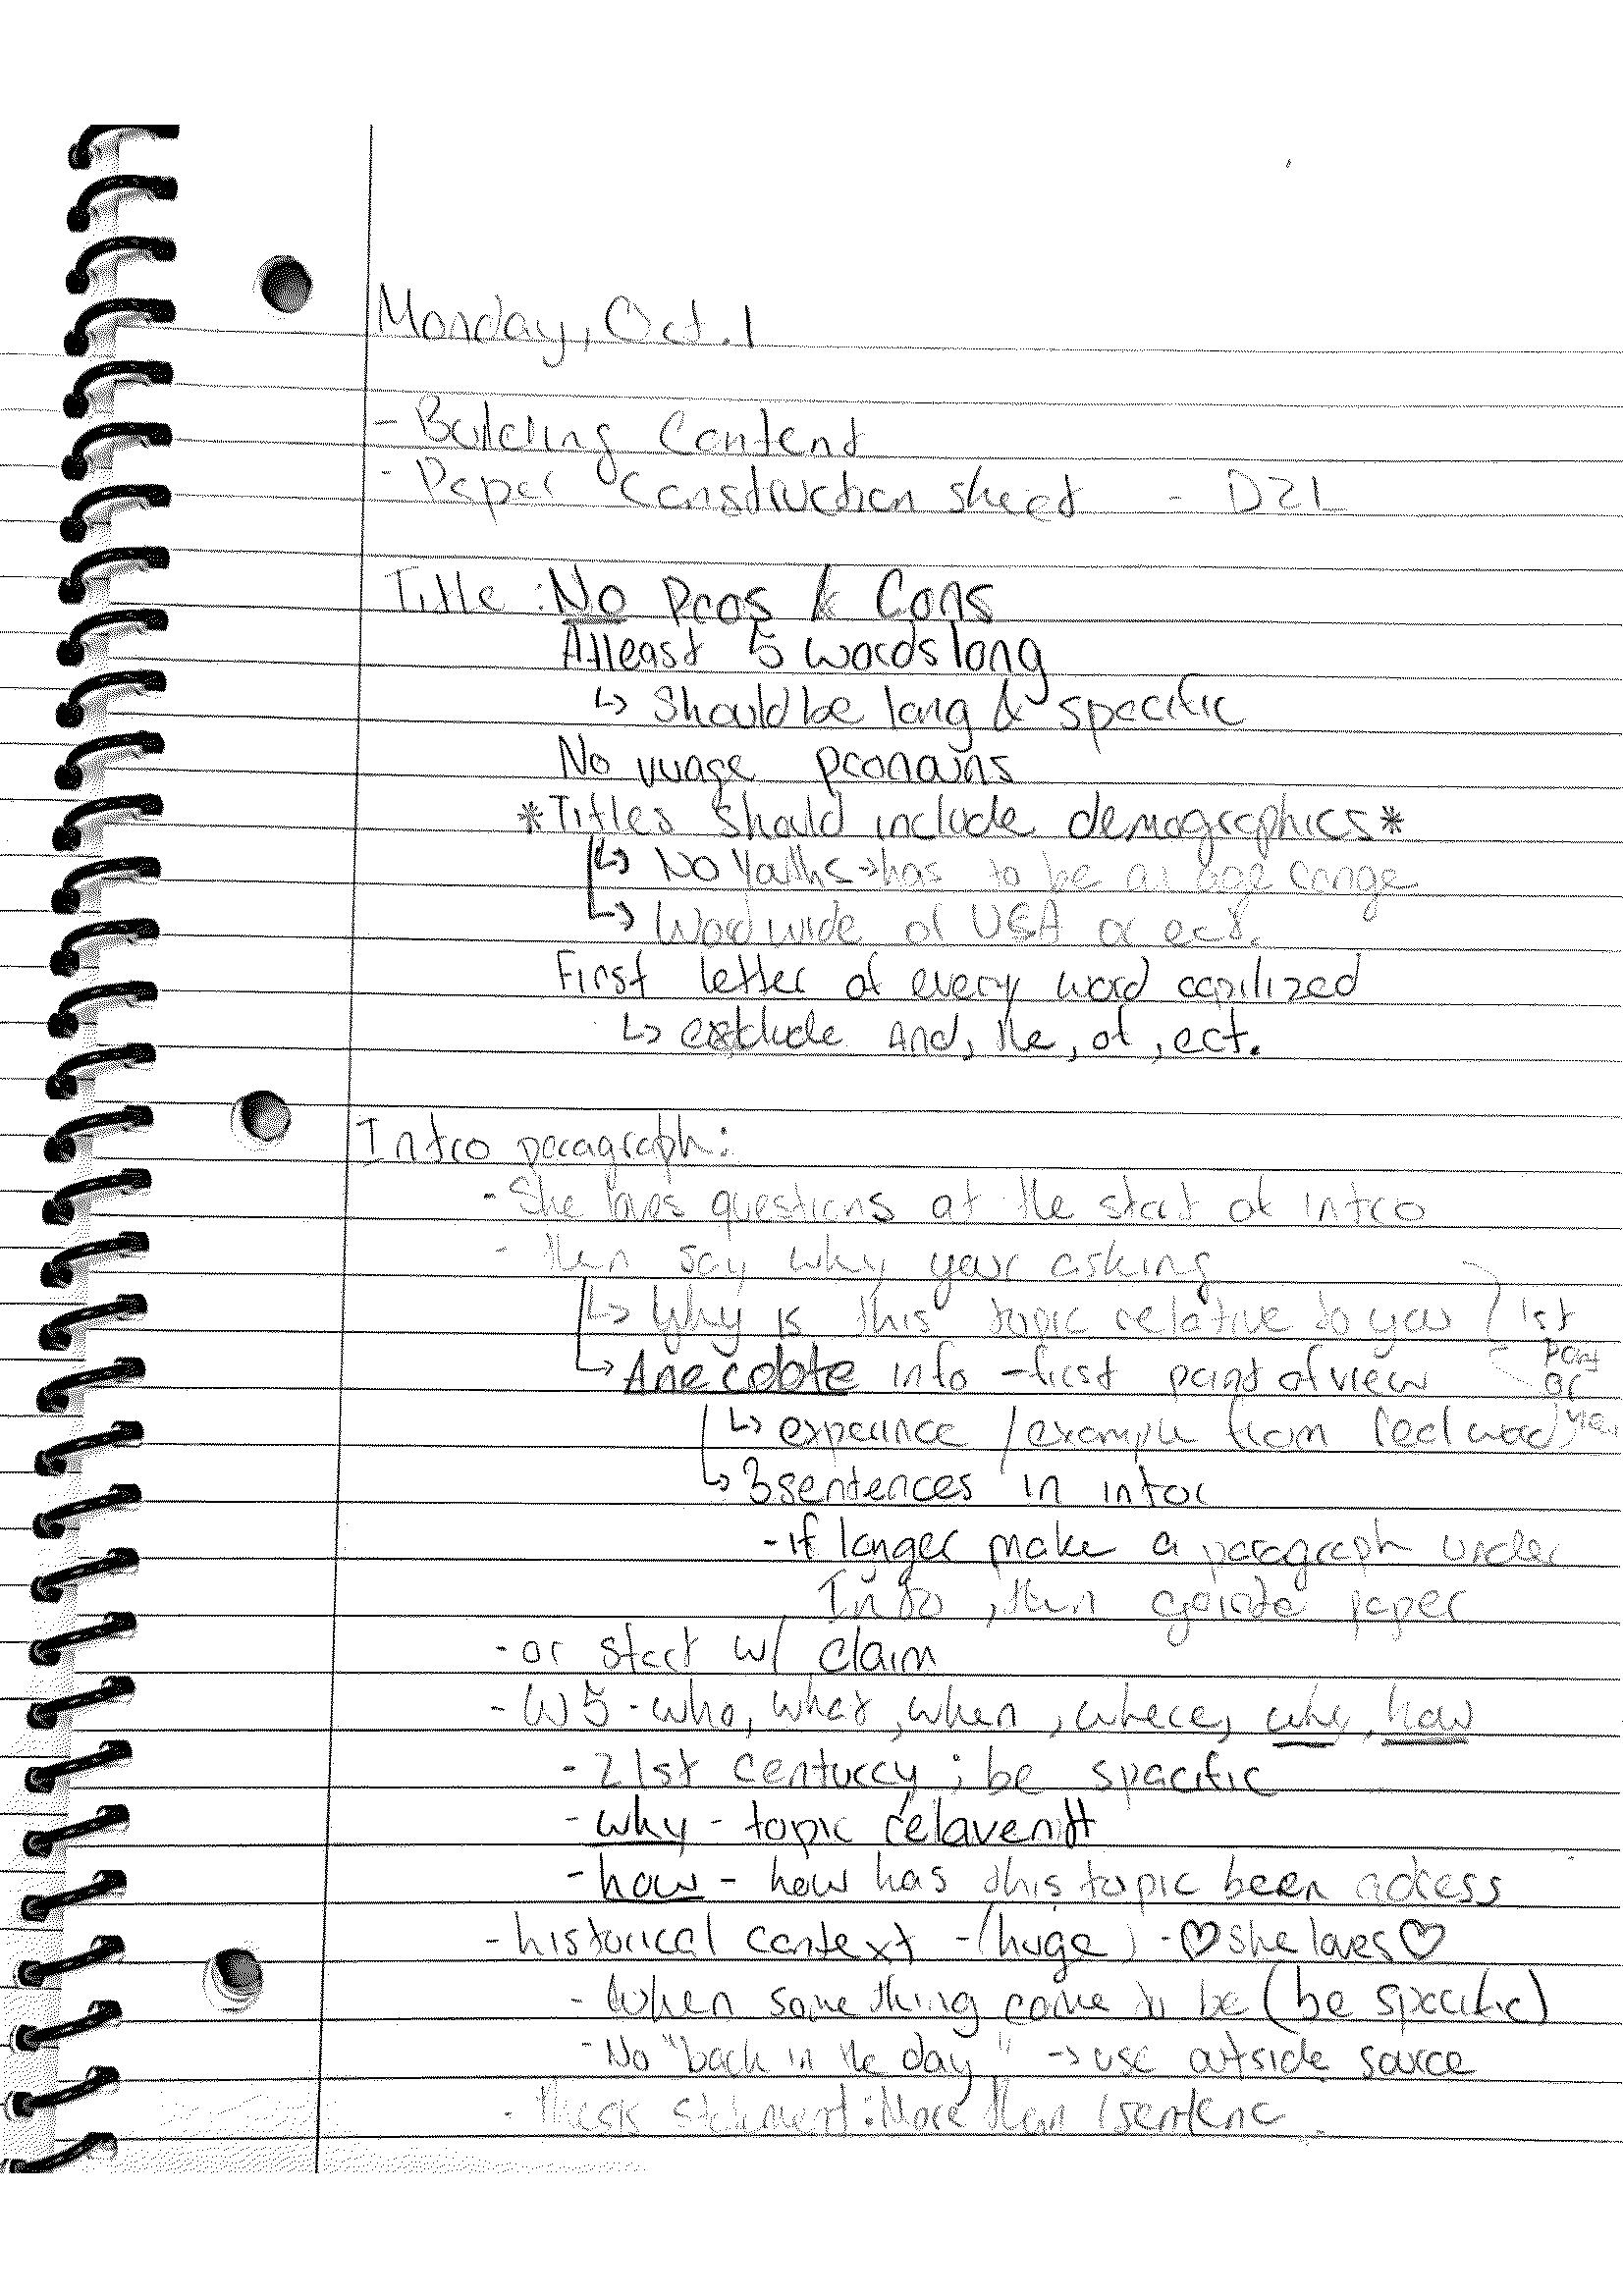 Monday, Oct. 1
- Building Content
- Paper Construction sheet - D2L
Title : No Pros & Cons
Atleast 5 words long
↳ Should be long & specific
No vuage pronouns
*Titles should include demographics*
↳ No Youths → has to be an age range
↳ Word wide of USA or ect.
First letter of every word capilized
↳ exclude And, the, of, ect.
Intro paragraph:
- She loves questions at the start of intro
- then say why your asking
↳ Why is this topic relative to you 1st
↳ Anecdote info - first point of view point of
↳ experince / example from real word
↳ 3 sentences in intor
- if longer make a paragraph under
Intro, then paper
- or start w/ claim
- W5 - who, what, when, where, why, how
- 21st centurcy ; be spacific
- why - topic relavent
- how - how has this topic been adress
- historical context - (huge) - ♡ she loves ♡
- When something come to be (be specific)
- No "back in the day" → use outside source
- thesis statement: More than 1 sentenc